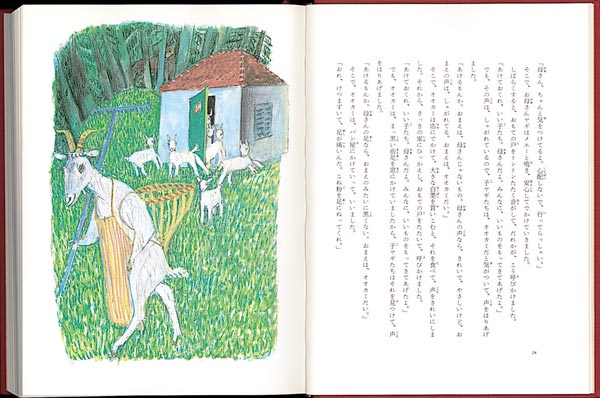 「母さん、ちゃんと気をつけてるよ。心配しないで、行ってらっしゃい。」
そこで、お母さんヤギはメエーと鳴き、安心してでかけていきました。
しばらくすると、おもての戸をトントンたたく音がして、だれかが、こう呼びかけました。
「あけておくれ、いい子たち。母さんだよ。みんなに、いいものをもってきてあげたよ。」
でも、その声は、しゃがれているので、子ヤギたちは、オオカミだと気がついて、声をはりあげ
ました。
「あけるもんか。おまえは、母さんじゃないもの。母さんの声なら、きれいで、やさしいけど、お
まえの声は、しゃがれてる。おまえは、オオカミだい。」
そこで、オオカミは店にでかけて、大きな白墨を買いこむと、それを食べて、声をきれいにしま
した。それから、さっきの家にひっかえし、おもての戸をたたいて、呼びかけました。
「あけておくれ、いい子たち。母さんだよ。みんなに、いいものをもってきてあげたよ。」
でも、オオカミは、まっ黒い前足を窓にかけていましたから、子ヤギたちはそれを見つけて、声
をはりあげました。
「あけるもんか。母さんの足なら、おまえのみたいに黒くない。おまえは、オオカミだい。」
そこで、オオカミは、パン屋にかけていって、いいました。
「おれ、けつまずいて、足が痛いんだ。こね粉を足にぬってくれ。」
28